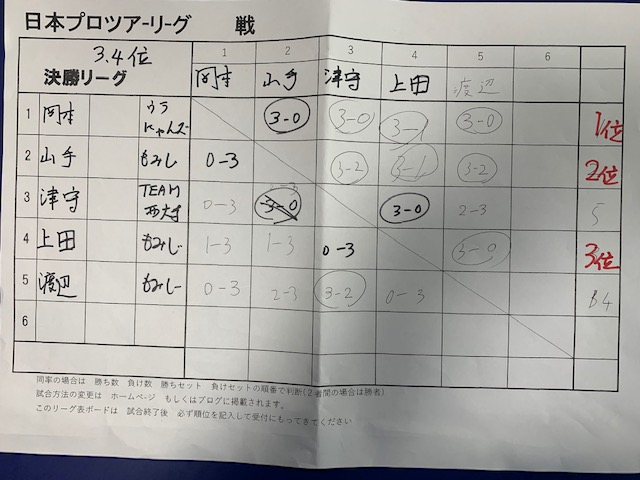 日本プロツアーリーグ 戦
3.4位
決勝リーグ
1 2 3 4 5 6
岡本 山手 津守 上田 渡辺
1 岡本 ウラ にゃんズー 3-0 3-0 3-1 3-0 1位
2 山手 もみじ 0-3 3-2 3-1 3-2 2位
3 津守 TEAM 西村 0-3 3-0 3-0 2-3 5
4 上田 もみじ 1-3 1-3 0-3 3-0 3位
5 渡辺 もみじ 0-3 2-3 3-2 0-3 4
6
同率の場合は 勝ち数 負け数 勝ちセット 負けセットの順番で判断(2者間の場合は勝者)
試合方法の変更は ホームページ もしくはブログに掲載されます。
このリーグ表ボードは 試合終了後 必ず順位を記入して受付にもってきてください